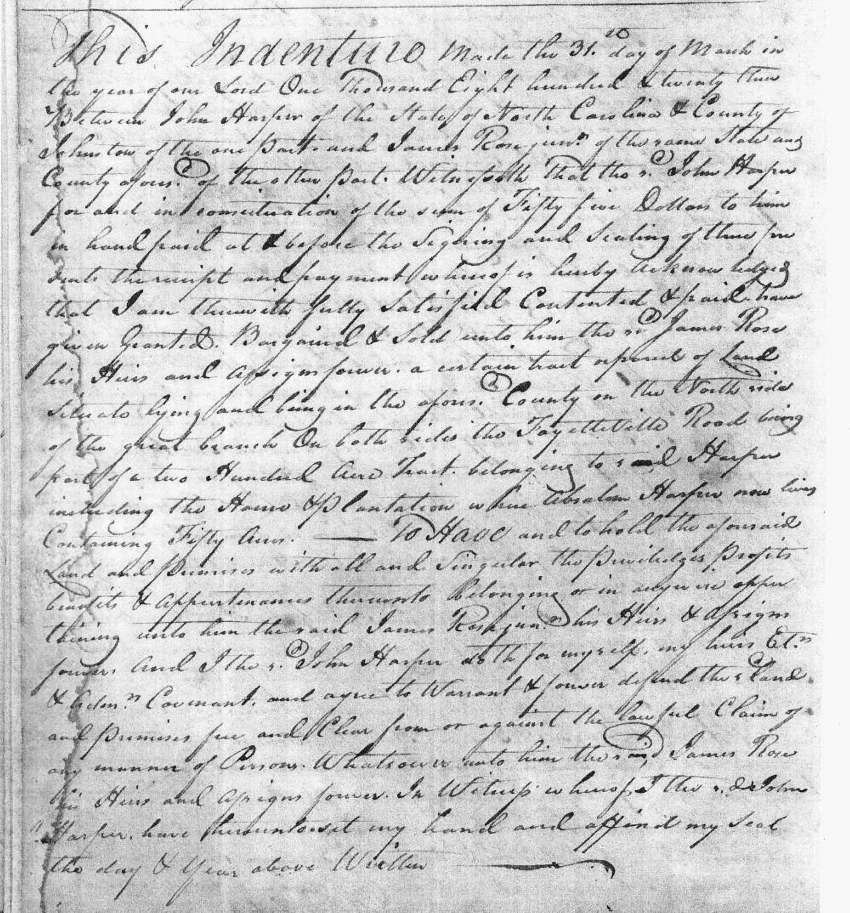 This Indenture Made the 31.st day of March in
the year of our Lord One Thousand Eight hundred & twenty three
Between John Harper of the State of North Carolina & County of
Johnston of the one part and James Rose junr. of the same State and
County afores.d of the other part. Witnesseth that the s.d John Harper
for and in consideration of the sum of Fifty five Dollars to him
in hand paid at & before the Signing and Sealing of these pre
sents the receipt and payment whereof is hereby acknowledged
that I am therewith fully Satisfied Contented & paid have
given Granted. Bargained & Sold unto him the s.d James Rose
his Heirs and assigns forever. a certain tract or parcel of Land
Situate lying and being in the afores.d County on the North side
of the great branch On both sides the Fayetteville Road being
part of a two Hundred Acre Tract. belonging to said Harper
including the House & plantation where Absalom Harper now lives
Containing Fifty Acres. — To Have and to hold the aforesaid
Land and premises with all and Singular the priviledges profits
benifits & appertenances thereunto Belonging or in anywise apper
taining unto him the said James Rose jun.r his Heirs & assigns
forever. And I the s.d John Harper doth for myself. my heirs Ex.rs
& Adm.rs Covenant. and agree to Warrant & forever defend the s.d Land
and premises free and Clear from or against the lawful Claim of
any manner of Persons. Whatsoever unto him the said James Rose
his Heirs and assigns forever. In Witness whereof I the s.d John
Harper. have hereunto set my hand and affixed my Seal
the day & Year above Written